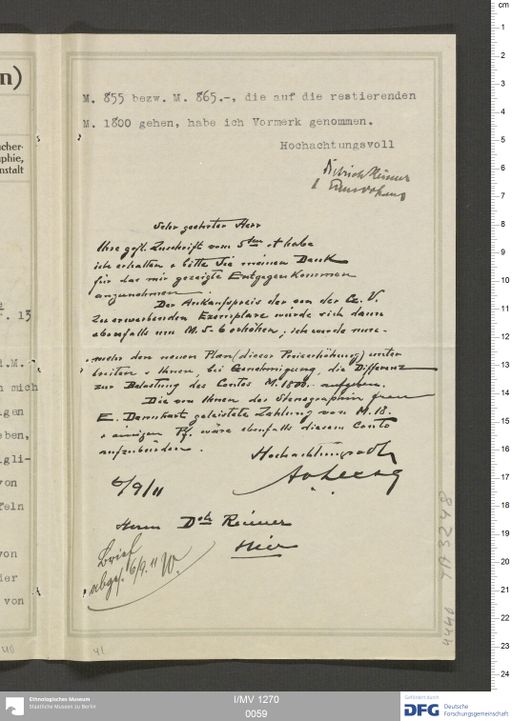 n)
ücher-
phie,
nstalt
. 13
.M.
h mich
gen
eben,
igli-
von
feln
von
ier
von
40
M. 855 bezw. M. 865.-, die auf die restierenden
M. 1800 gehen, habe ich Vormerk genommen.
Hochachtungsvoll
Dietrich Reimer
Sehr geehrter Herr
Ihre gefl. Zuschrift vom 5ten ct habe
ich erhalten & bitte Sie meinen Dank
für das mir gezeigte Entgegenkommen
anzunehmen.
Der Ankaufspreis der von der G. V.
zu erwerbenden Exemplare würde sich dann
ebenfalls um M. 5-6 erhöhen; ich werde nun-
mehr den neuen Plan (dieser Preiserhöhung) unter
breiten & Ihnen, bei Genehmigung, die Differenz
zur Belastung des Contos M. 1800.- aufgeben.
Die von Ihnen der Stenographin Frau
E. geleistete Zahlung von M. 18.
& einigen Pf. wäre ebenfalls diesem Conto
aufzubürden.
Hochachtungsvoll
6/9/11
Herrn Reimer
Hier
Brief
abges. 6/9. 11 W.
41
4440 TA3248
cm
1
2
3
4
5
6
7
8
9
10
11
12
13
14
15
16
17
18
19
20
21
22
23
24
Ethnologisches Museum
Staatliche Museen zu Berlin
I/MV 1270
0059
Gefördert durch
DFG Deutsche
Forschungsgemeinschaft